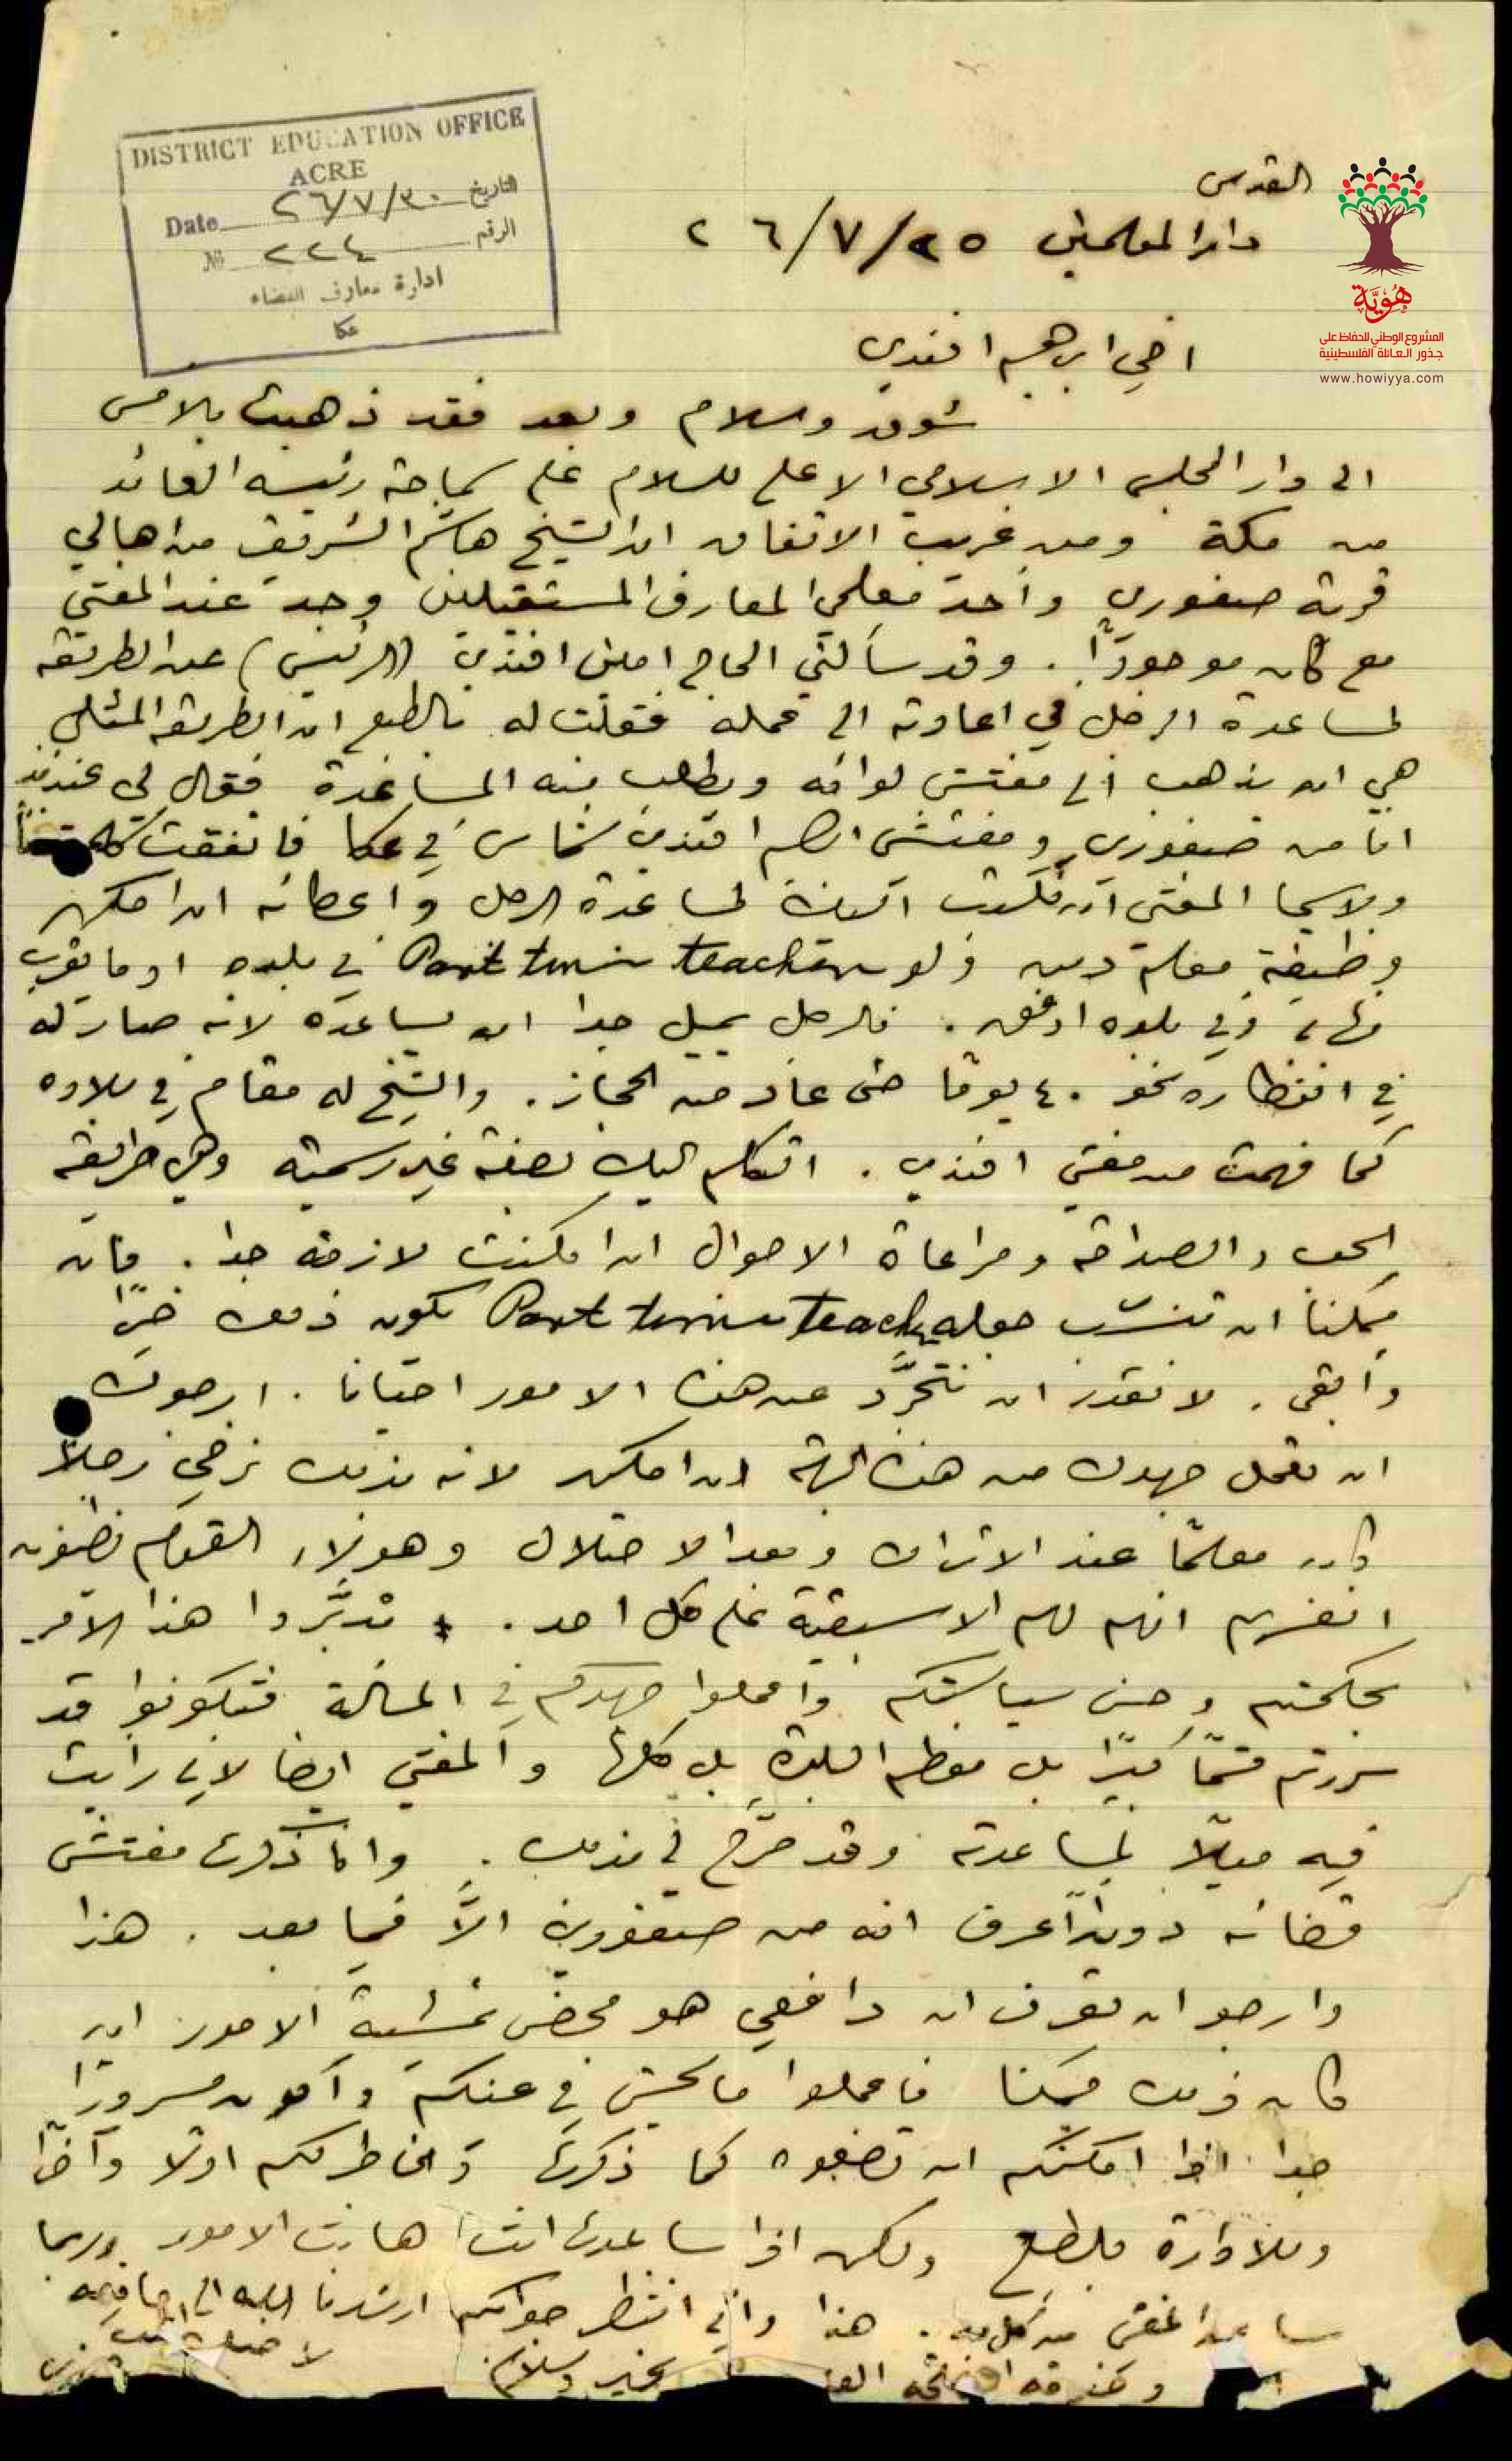 DISTRICT EDUCATION OFFICE
ACRE
التاريخ ٢٦/٧/٣٠ Date
الرقم ٢٢٤ №
ادارة معارف القضاء
عكا
القدس
دار المعلمين ٢٥/٧/٢٦
هُوِيَّة
المشروع الوطني للحفاظ على
جذور العائلة الفلسطينية
www.howiyya.com
اخي ابرهيم افندي
شوق وسلام وبعد فقد ذهبت بالامس
الى دار المجلس الاسلامي الاعلى للسلام على سماحة رئيسه العائد
من مكة ومن غريب الاتفاق ان الشيخ هاشم الشريف من اهالي
قرية صفوري واحد معلمي المعارف المستقيلين وجد عند المفتي
مع كان موجودًا. وقد سألني الحاج امين افندي (الرئيس) عن الطريقه
لمساعدة الرجل في اعادته الى عمله فقلت له بالطبع ان الطريقه المثلى
هي ان يذهب الى مفتش لوائه ويطلب منه المساعدة فقال لي عندئذ
انا من صفوري ومفتشي ابرهيم افندي شماس في عكا فاتفقت
ولاسيما المفتي ان اكتب اليك لمساعدة الرجل واعطائه ان امكن
وظيفة معلم دين ولو Part time teaching في بلده او ما يقرب
منها وفي بلده اوفق. فالرجل يميل جدا ان يساعده لانه صار له
في انتظاره نحو ٤٠ يومًا حتى عاد من الحجاز. والشيخ له مقام في بلاده
كما فهمت من مفتي افندي. اتكلم اليك بصفة غير رسمية وهي طريقه
الحب والصداقه ومراعاة الاحوال ان امكنت لازمه جدا. فان
يمكننا ان تنسب جعله Part time teacher يكون ذلك خيرًا
وابقى. لا نقدر ان نتجرَّد عن هذه الامور احيانا. ارجوك
ان تعمل جهدك من هذه الجهة ان امكن لانه بذلك نرضي رجلًا
كان معلمًا عند الاتراك وبعد الاحتلال وهؤلاء القوم يظنون
انفسهم انهم لهم الاسبقية على كل احد. تدبَّروا هذا الامر
بحكمتكم وحسن سياستكم واعملوا جهدكم في المسألة فتكونوا قد
سررتم قسمًا كبيرًا بل معظم البلدة بل كلها والمفتي ايضا لاني رأيت
فيه ميلًا لمساعدته وقد صرَّح لي بذلك. وانا ذكرت مفتش
قضائه دون ان اعرف انه من صفوري الَّا فيما بعد. هذا
وارجو ان تعرف ان دافعي هو محض تمشية الامور ان
كان ذلك ممكنا فاعملوا ما يحسن في عينكم واكون مسرورًا
جدا اذا امكنكم ان تضعوه كما ذكرت والخاطر لكم اولًا وآخرًا
وللادارة بالطبع ولكن اذا ساعدت انت هانت الامور وربما
ساعد المفتي من كل. هذا واني انتظر جوابكم ارشدنا الله الى ما فيه
بخير وسلام